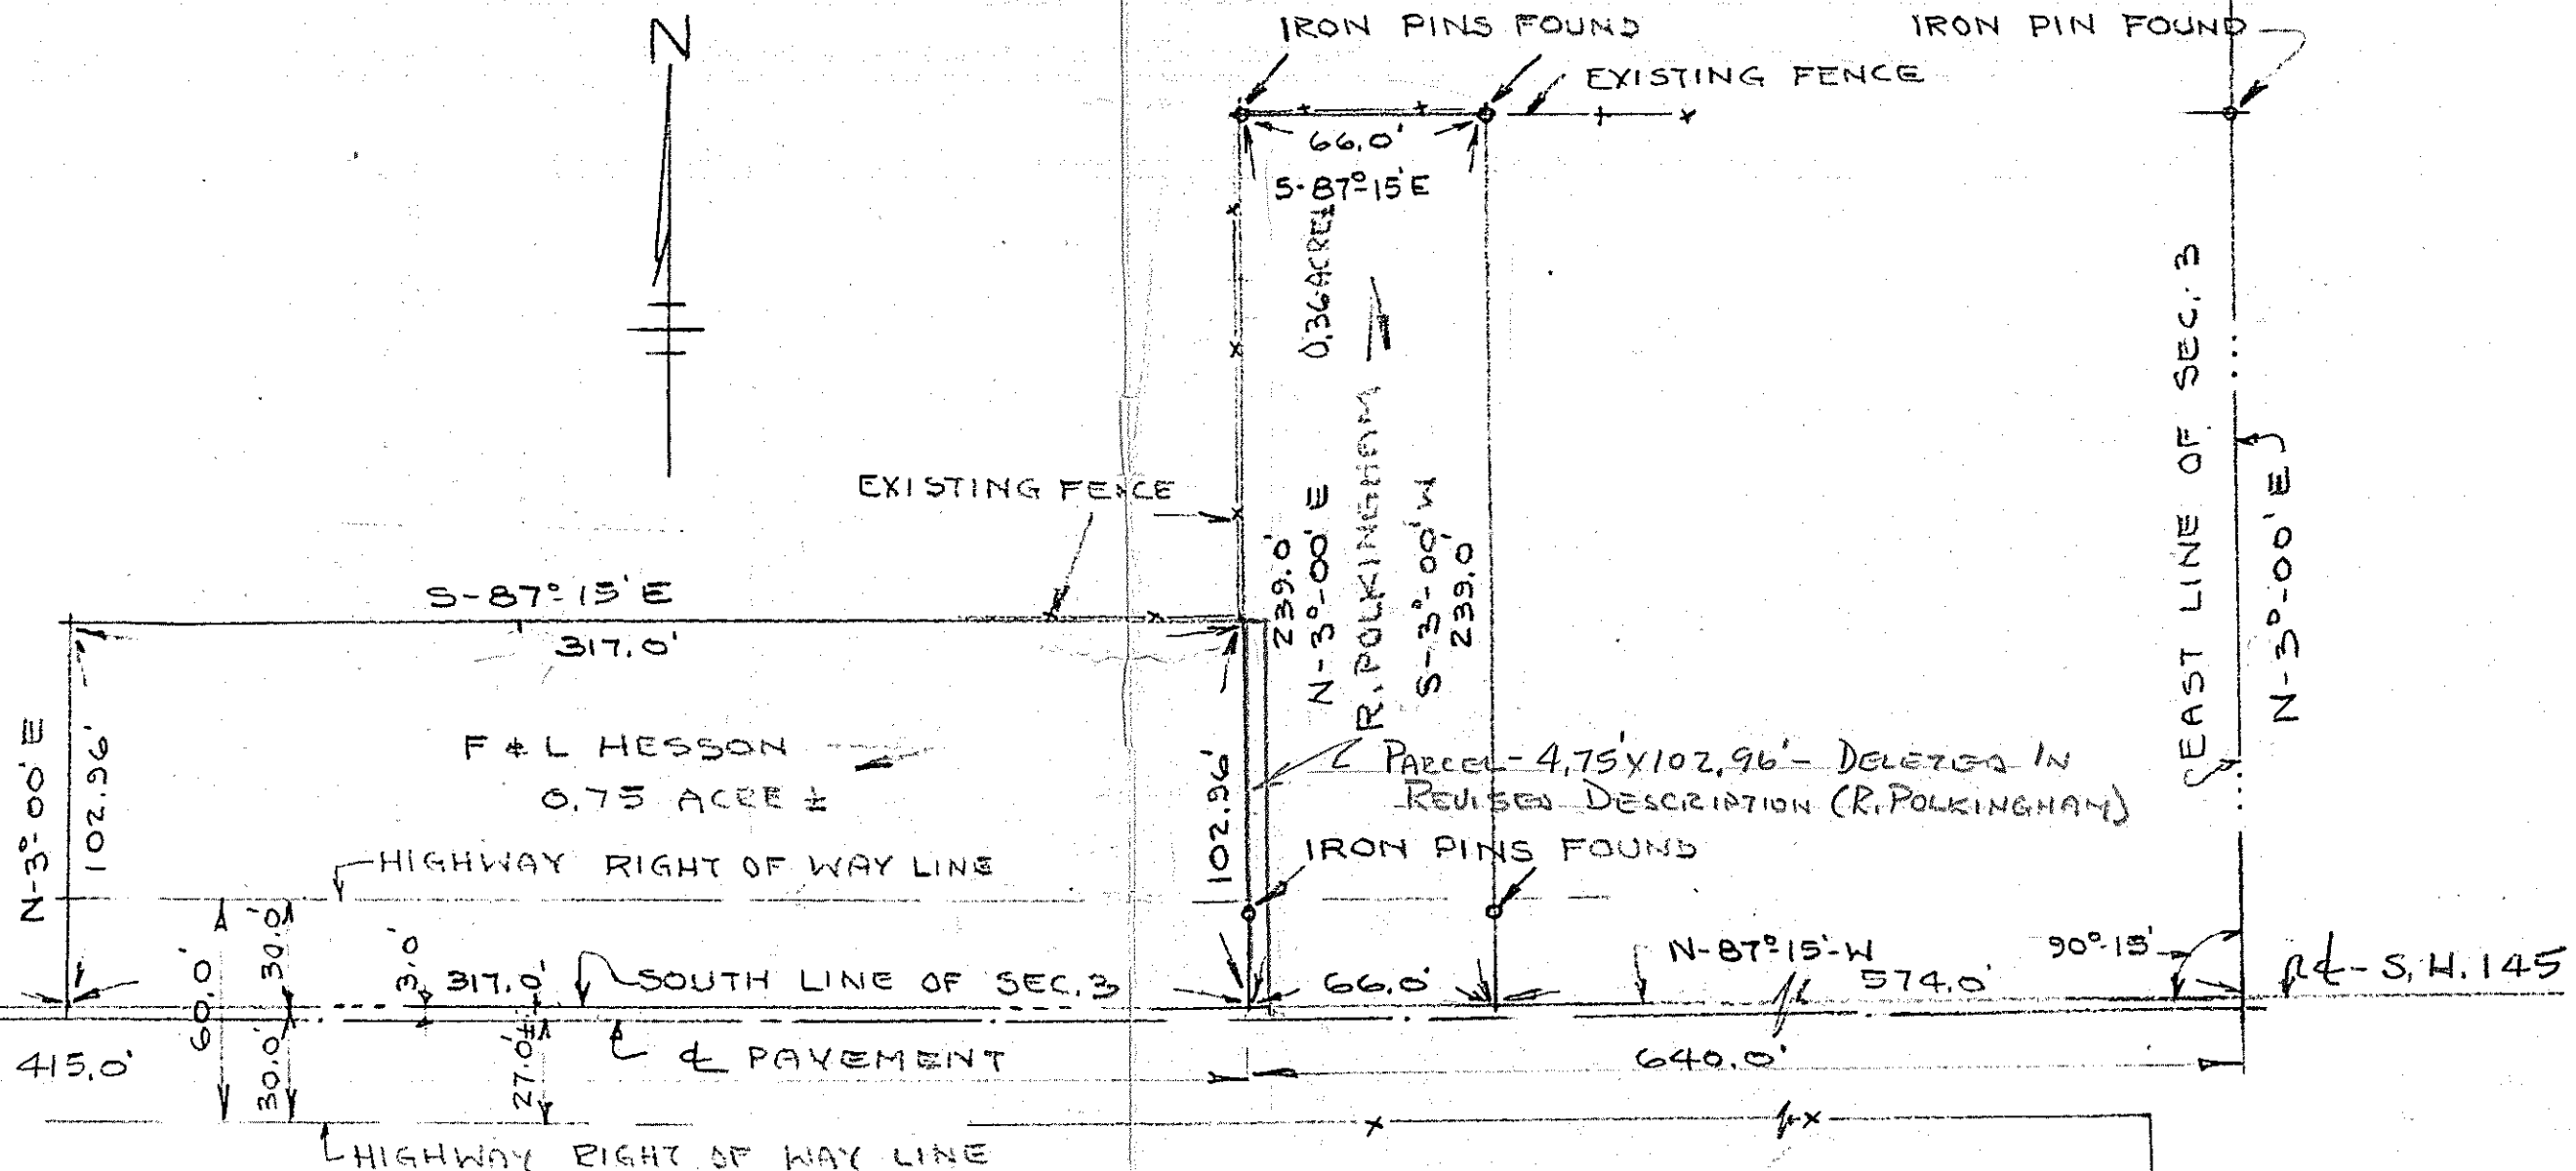 N
IRON PINS FOUND
IRON PIN FOUND
EXISTING FENCE
66.0'
S-87°-15'E
0.36 ACRE±
R. POLKINGHAM
239.0'
N-3°-00' E
S-3°-00' W
239.0'
EAST LINE OF SEC. 3
N-3°-00' E
EXISTING FENCE
S-87°-15' E
317.0'
N-3°-00' E
102.96'
F & L HESSON
0.75 ACRE ±
102.96'
PARCEL - 4.75'X102.96' - DELETED IN
REVISED DESCRIPTION (R. POLKINGHAM)
IRON PINS FOUND
HIGHWAY RIGHT OF WAY LINE
60.0'
30.0'
30.0'
3.0'
27.0'±
317.0'
SOUTH LINE OF SEC. 3
66.0'
N-87°-15'-W
574.0'
90°-15'
℄ - S.H. 145
415.0'
℄ PAVEMENT
640.0'
HIGHWAY RIGHT OF WAY LINE